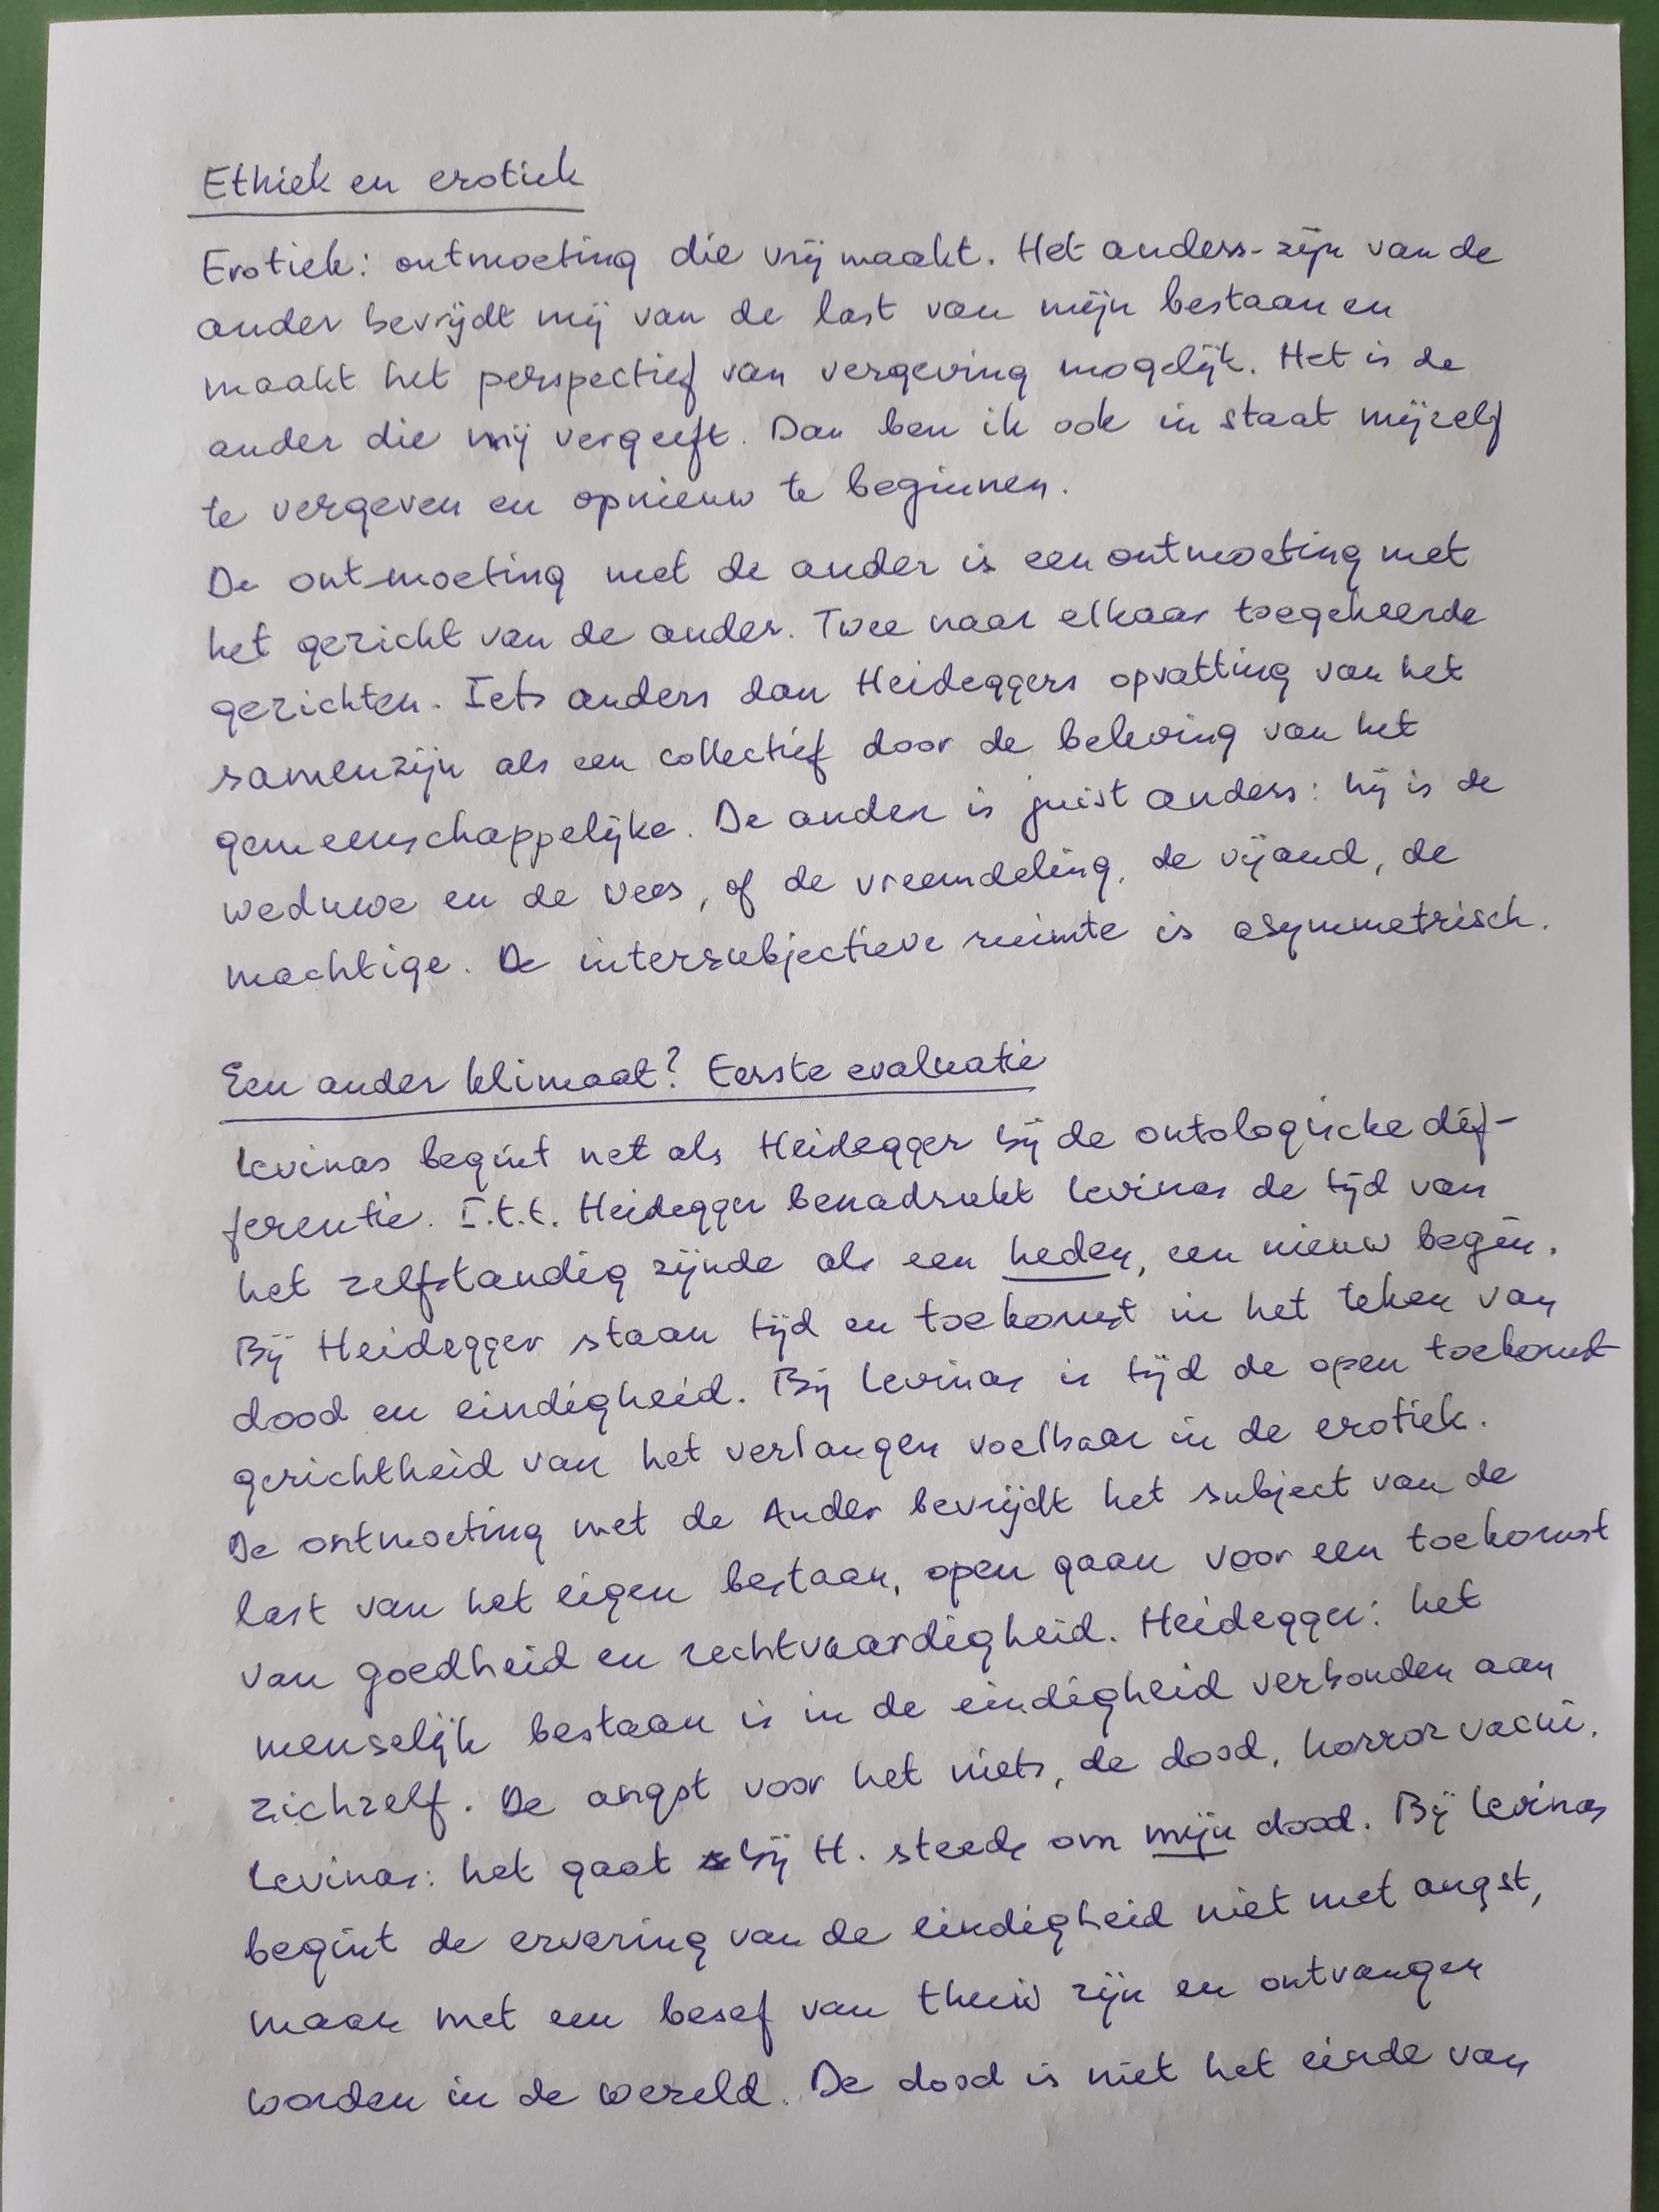 Ethiek en erotiek
Erotiek: ontmoeting die vrij maakt. Het anders-zijn van de
ander bevrijdt mij van de last van mijn bestaan en
maakt het perspectief van vergeving mogelijk. Het is de
ander die mij vergeeft. Dan ben ik ook in staat mijzelf
te vergeven en opnieuw te beginnen.
De ontmoeting met de ander is een ontmoeting met
het gezicht van de ander. Twee naar elkaar toegekeerde
gezichten. Iets anders dan Heideggers opvatting van het
samenzijn als een collectief door de beleving van het
gemeenschappelijke. De ander is juist anders: hij is de
weduwe en de wees, of de vreemdeling, de vijand, de
machtige. De intersubjectieve ruimte is asymmetrisch.
Een ander klimaat? Eerste evaluatie
Levinas begint net als Heidegger bij de ontologische dif-
ferentie. I.t.t. Heidegger benadrukt Levinas de tijd van
het zelfstandig zijnde als een heden, een nieuw begin.
Bij Heidegger staan tijd en toekomst in het teken van
dood en eindigheid. Bij Levinas is tijd de open toekomst
gerichtheid van het verlangen voelbaar in de erotiek.
De ontmoeting met de Ander bevrijdt het subject van de
last van het eigen bestaan, open gaan voor een toekomst
van goedheid en rechtvaardigheid. Heidegger: het
menselijk bestaan is in de eindigheid verbonden aan
zichzelf. De angst voor het niets, de dood, horror vacui.
Levinas: het gaat bij H. steeds om mijn dood. Bij Levinas
begint de ervaring van de eindigheid niet met angst,
maar met een besef van thuis zijn en ontvangen
worden in de wereld. De dood is niet het einde van